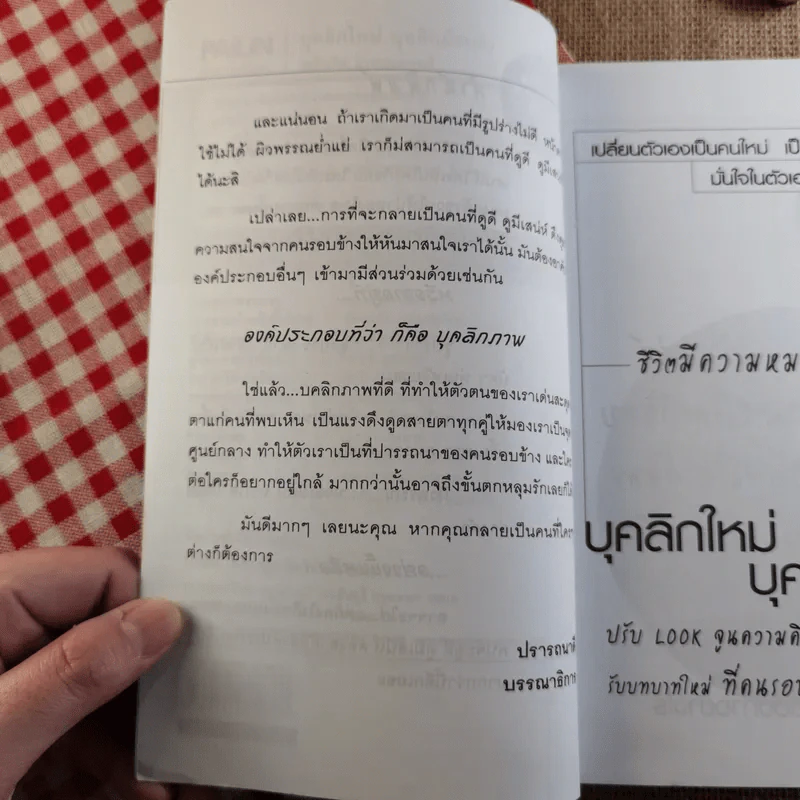 และแน่นอน ถ้าเราเกิดมาเป็นคนที่มีรูปร่างไม่ดี
ใช้ไม่ได้ ผิวพรรณย่ำแย่ เราก็ไม่สามารถเป็นคนที่ดูดี
ได้นะสิ
เปล่าเลย...การที่จะกลายเป็นคนที่ดูดี ดูมีเสน่ห์
ความสนใจจากคนรอบข้างให้หันมาสนใจเราได้นั้น มันต้อง
องค์ประกอบอื่นๆ เข้ามามีส่วนร่วมด้วยเช่นกัน
องค์ประกอบที่ว่า ก็คือ บุคลิกภาพ
ใช่แล้ว...บคลิกภาพที่ดี ที่ทำให้ตัวตนของเราเด่น
ตาแก่คนที่พบเห็น เป็นแรงดึงดูดสายตาทุกคู่ให้มองเราเป็น
ศูนย์กลาง ทำให้ตัวเราเป็นที่ปารรถนาของคนรอบข้าง
ต่อใครก็อยากอยู่ใกล้ มากกว่านั้นอาจถึงขั้นตกหลุมรักเลย
มันดีมากๆ เลยนะคุณ หากคุณกลายเป็นคนที่
ต่างก็ต้องการ
เปลี่ยนตัวเองเป็นคนใหม่
มั่นใจในตัว
ชีวิตมีความ
บุคลิกใหม่
ปรับ LOOK จูนความ
รับบทบาทใหม่ ที่คน